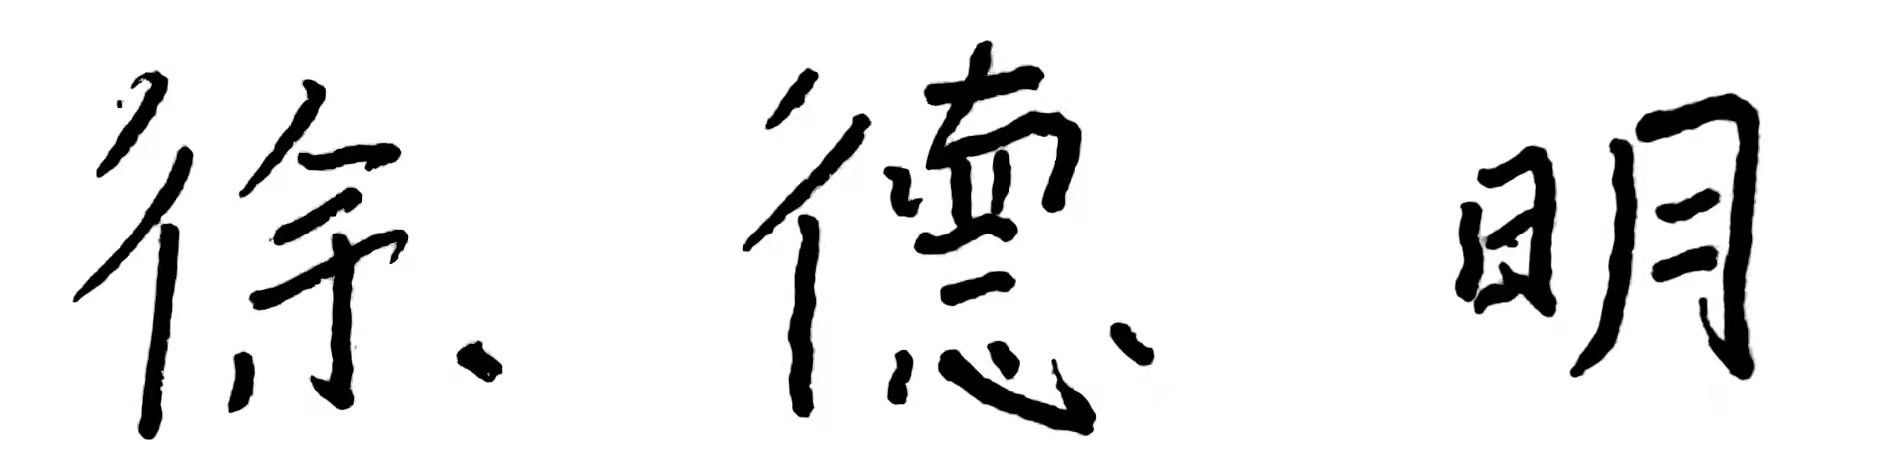 徐德明